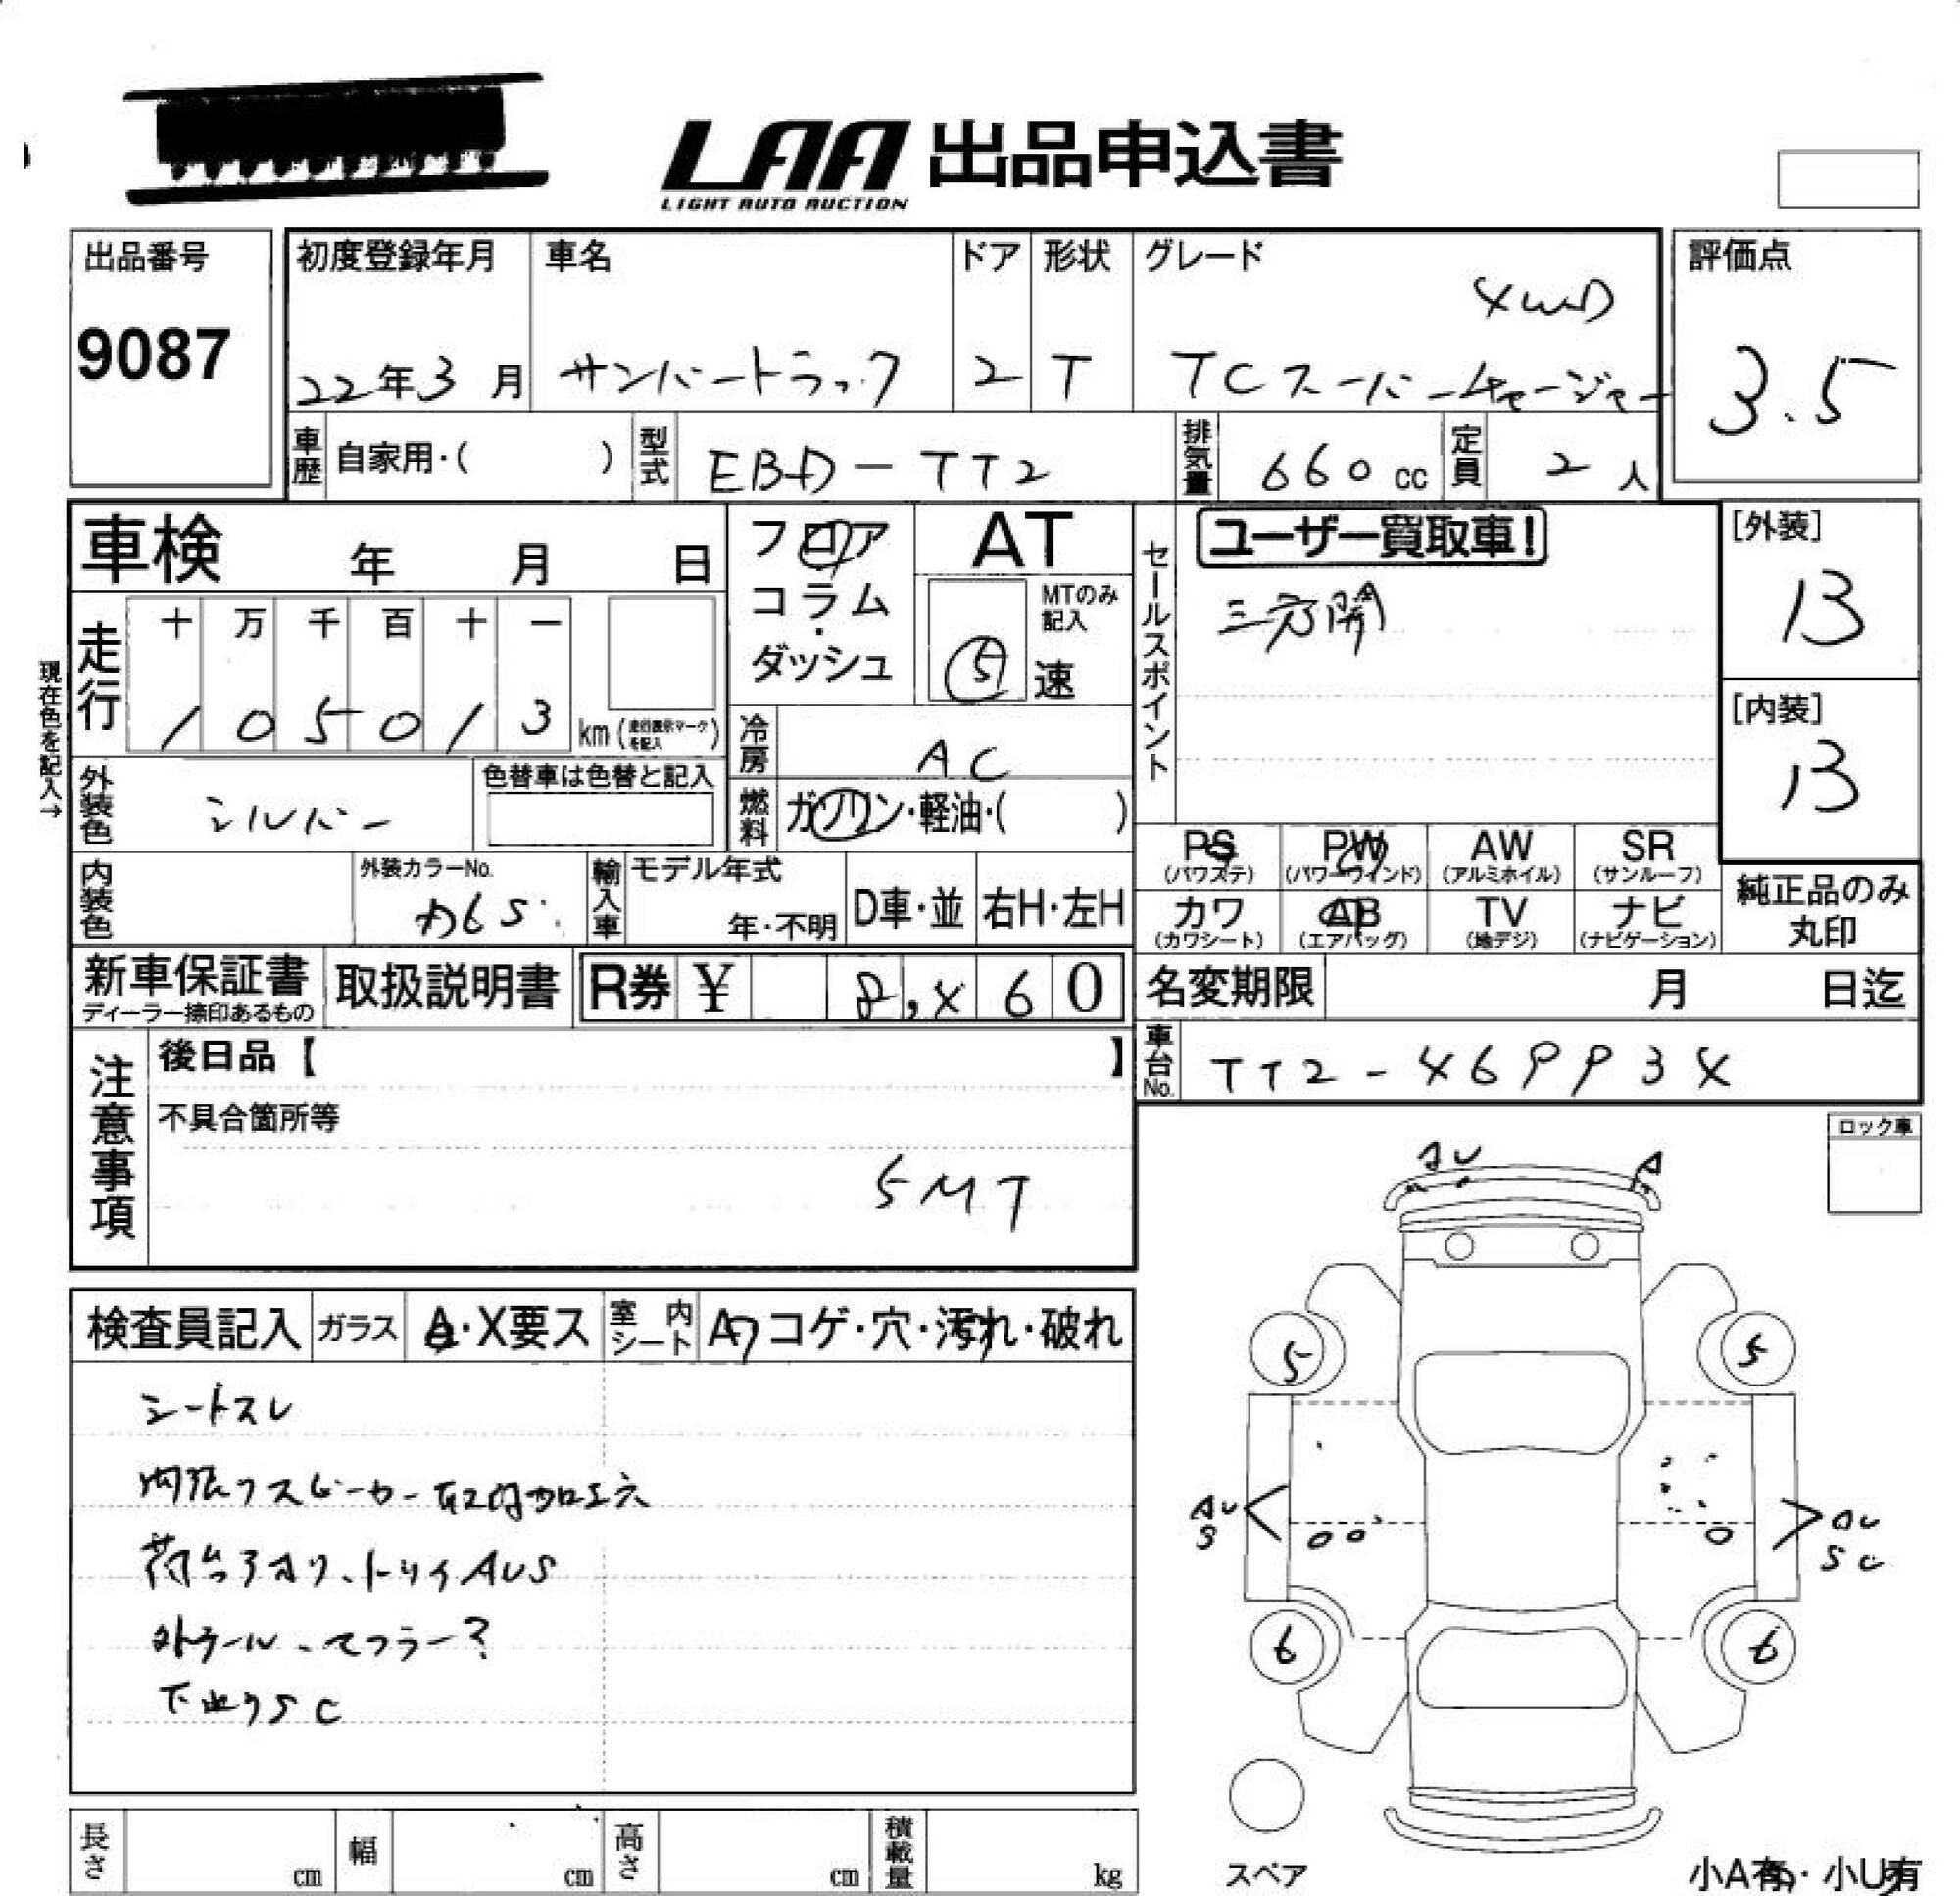 LAA 出品申込書
LIGHT AUTO AUCTION
出品番号
9087
初度登録年月
22年3月
車名
サンバートラック
ドア
2
形状
T
グレード
4WD
TCスーパーチャージャー
評価点
3.5
車歴
自家用・( )
型式
EBD-TT2
排気量
660cc
定員
2人
車検 年 月 日
フロア
コラム
・
ダッシュ
AT
MTのみ
記入
5速
セールスポイント
ユーザー買取車!
三方開
[外装]
B
[内装]
B
現在色を記入→
走行
十 万 千 百 十 一
1 0 5 0 1 3
km (走行表示マークを記入)
冷房
AC
外装色
シルバー
色替車は色替と記入
燃料
ガソリン・軽油・( )
PS
(パワステ)
PW
(パワーウインド)
AW
(アルミホイル)
SR
(サンルーフ)
カワ
(カワシート)
AB
(エアバッグ)
TV
(地デジ)
ナビ
(ナビゲーション)
純正品のみ
丸印
内装色
外装カラーNo.
輸入車
モデル年式
年・不明
D車・並
右H・左H
新車保証書
ディーラー捺印あるもの
取扱説明書
R券 ¥ 8,460
名変期限 月 日迄
車台No.
TT2-469934
注意事項
後日品【 】
不具合箇所等
5MT
ロック車
検査員記入
ガラス
A・X要ス
室内シート
コゲ・穴・汚れ・破れ
シートスレ
内張りスピーカー取付加工穴
荷台 トリイAUS
下廻りSC
AU
A
5
5
AU
S
AU
SC
6
6
スペア
小A有・小U有
長さ cm
幅 cm
高さ cm
積載量 kg